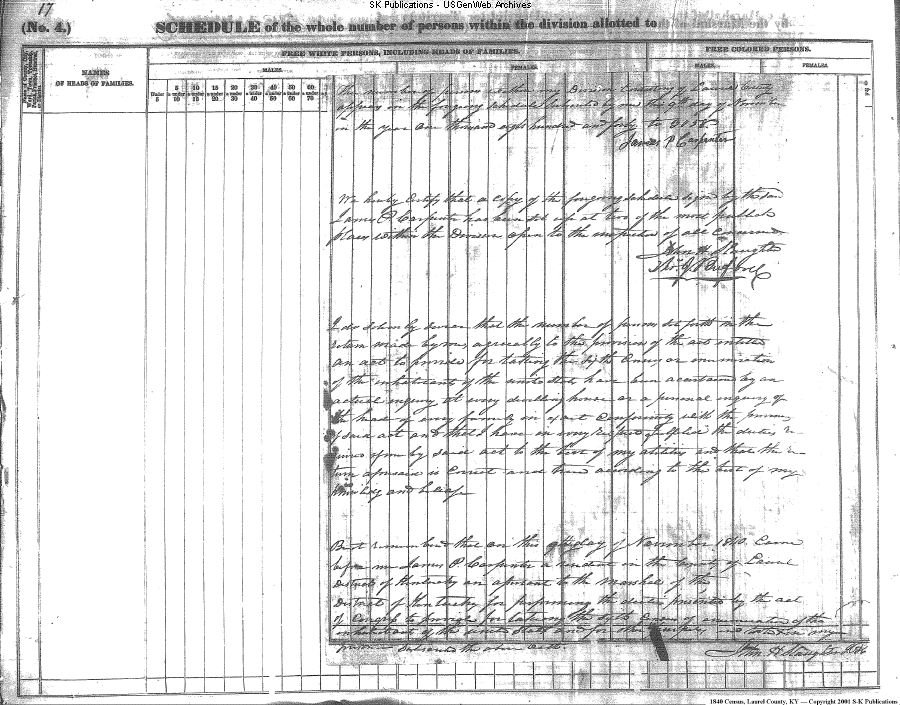 SK Publications - USGenWeb Archives
17
(No. 4.) SCHEDULE of the whole number of persons within the division allotted to
NAMES
OF HEADS OF FAMILIES.
FREE WHITE PERSONS, INCLUDING HEADS OF FAMILIES.
FREE COLORED PERSONS.
MALES.
FEMALES.
MALES.
FEMALES.
Under 5
5 & under 10
10 & under 15
15 & under 20
20 & under 30
30 & under 40
40 & under 50
50 & under 60
60 & under 70
The number of persons within my Division Consisting of Laurel County
appears in the foregoing schedule subscribed by me this 9th day of November
in the year one thousand eight hundred and forty
James P Carpenter
We hereby Certify that a copy of the foregoing schedule signed by the said
James P Carpenter has been set up at two of the most publick
places within the Division open to the inspection of all Concerned
John H Slaughter
I do solemnly swear that the number of persons set forth in the
return made by me, agreeably to the provision of the act entitled
an act to provide for taking the sixth Census, or enumeration
of the inhabitants of the united States have been ascertained by an
actual inquiry at every dwelling house or a personal inquiry of
the head of every family in exact Conformity with the
of said act and that I have in every respect fulfilled the duties re
quired of me by said act to the best of my abilities and that the re
turn aforesaid is Correct and true according to the best of my
knowledge and belief
Be it remembered that on this 9th day of November 1840. Came
before me James P Carpenter a resident in the County of Laurel
District of Kentucky an assistant to the marshal of the
District of Kentucky for performing the duties presented by the act
of Congress to provide for taking the sixth Census or enumeration of the
inhabitants of the united States and for other purposes and taken in my
presence the above oath.
John H Slaughter
1840 Census, Laurel County, KY — Copyright 2001 S-K Publications